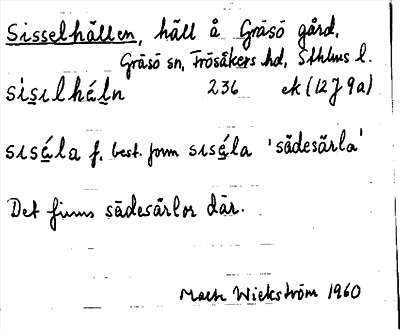 Sisselhällen, häll å Gräsö gård,
Gräsö sn, Frösåkers hd, Sthlms l.
sisilhäln 236 ek (12J 9a)
siséla f. best. form siséla 'sädesärla'
Det finns sädesärlor där.
Mats Wickström 1960